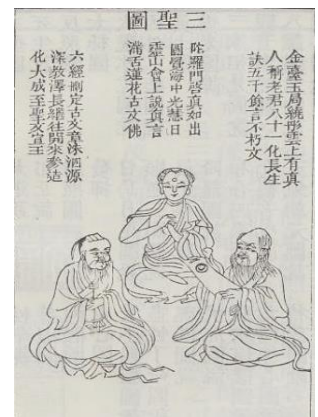 三聖圖
金臺玉局繞彤雲上有真
人稱老君八十一化長生
訣五千餘言不朽文
陀羅門啓真如出
圓覺海中光慧日
靈山會上說真言
滿舌蓮花古文佛
六經刪定古文章洙泗源
深教澤長繼往開來參造
化大成至聖文宣王